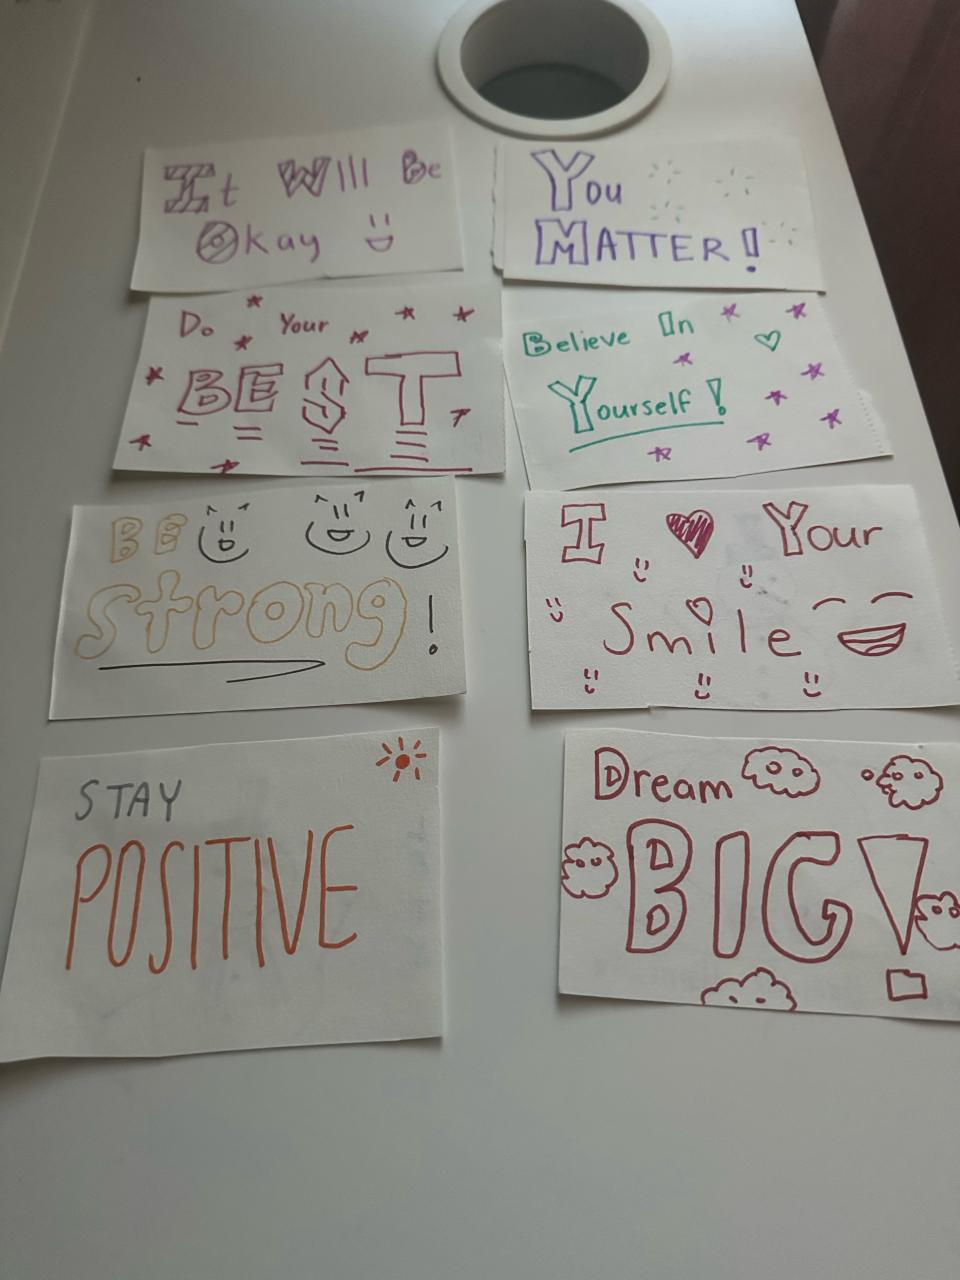 It Will Be
Okay
You
MATTER!
Do Your
BEST
Believe In
Yourself!
BE
strong!
I ❤ Your
Smile
STAY
POSITIVE
Dream
BIG!